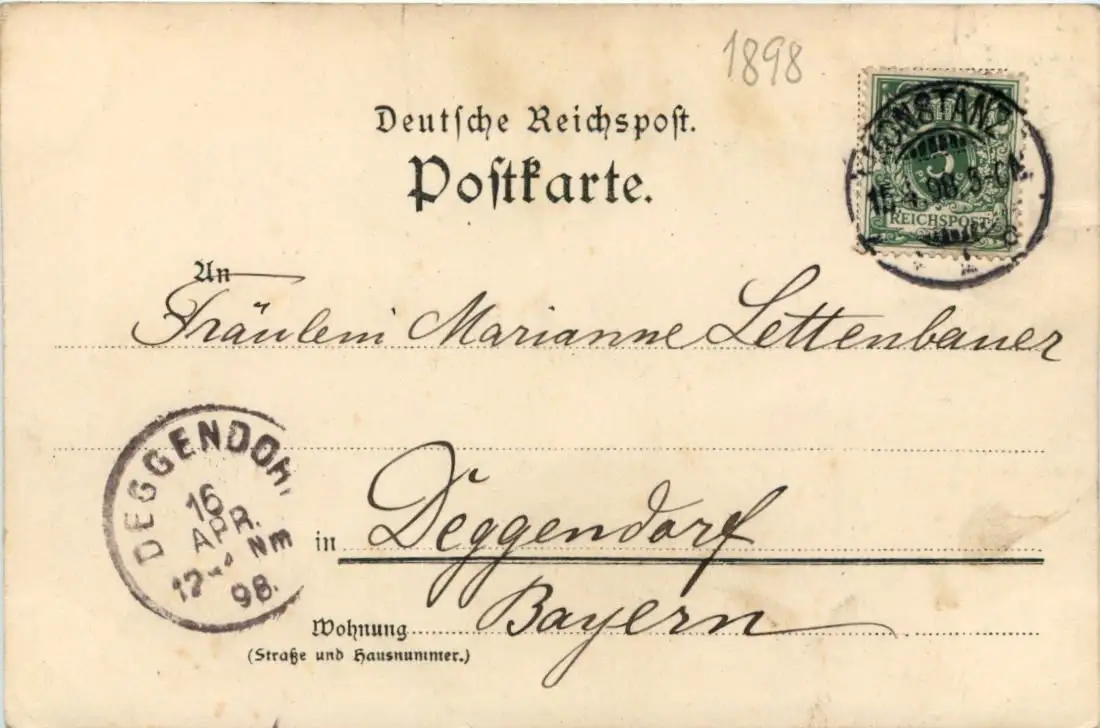 1898
Deutsche Reichspost.
Postkarte.
KONSTANZ
15 4 98 5-6N
5
REICHSPOST
An
Fräulein Marianne Lettenbauer
DEGGENDORF
16
APR.
12 Nm
98.
in Deggendorf
Bayern
Wohnung
(Straße und Hausnummer.)